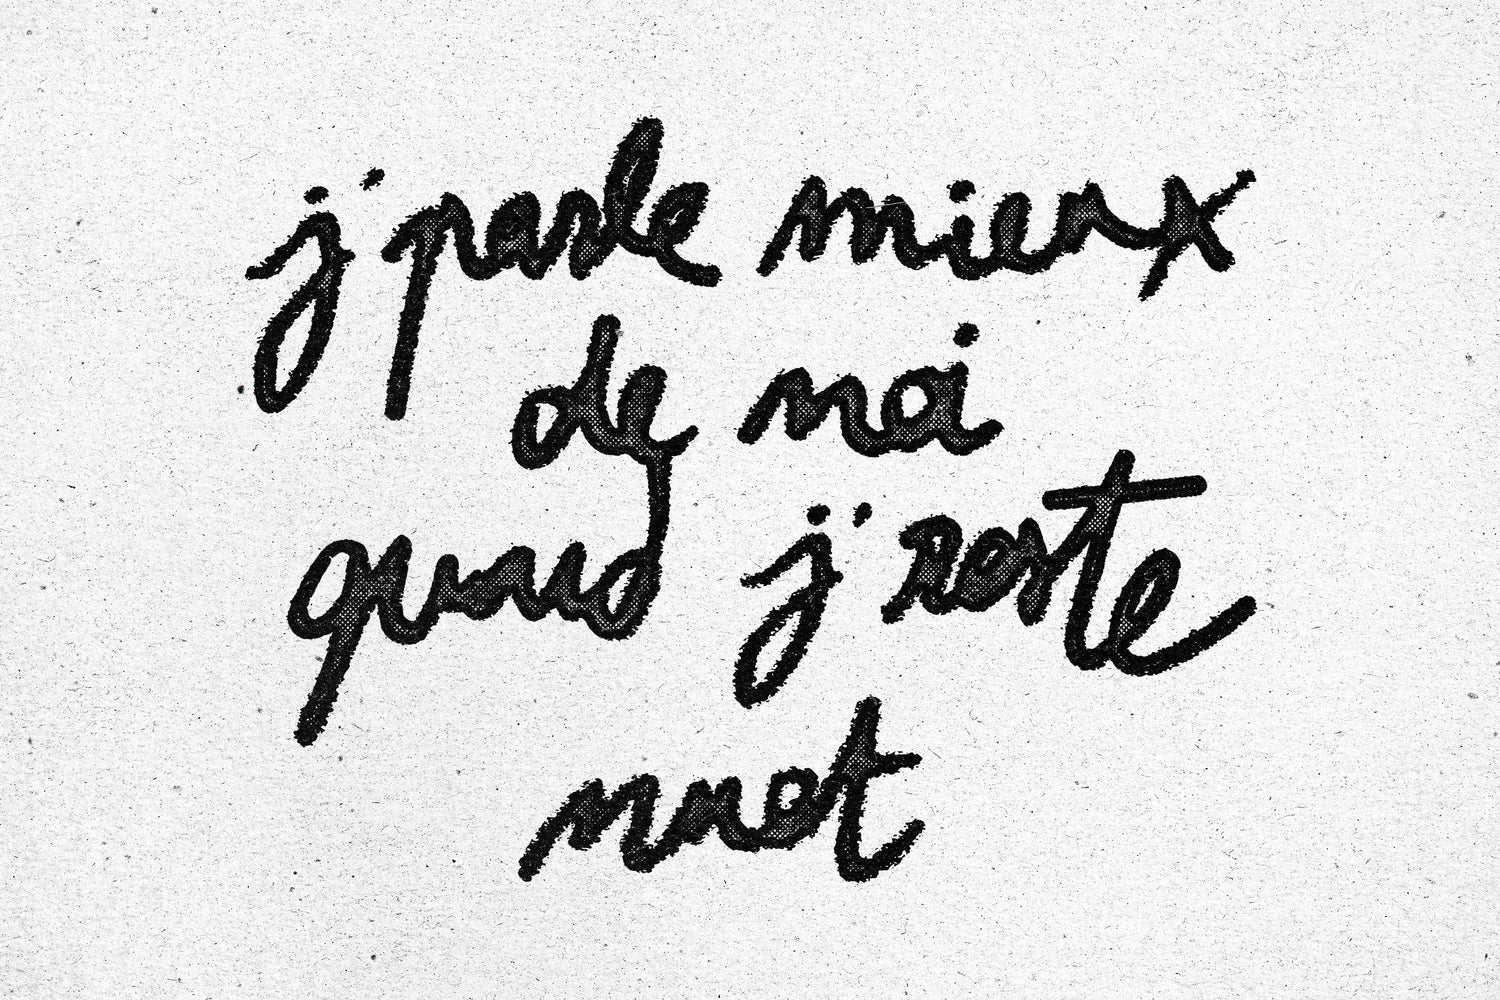 j'parle mieux
de moi
quand j'reste
muet